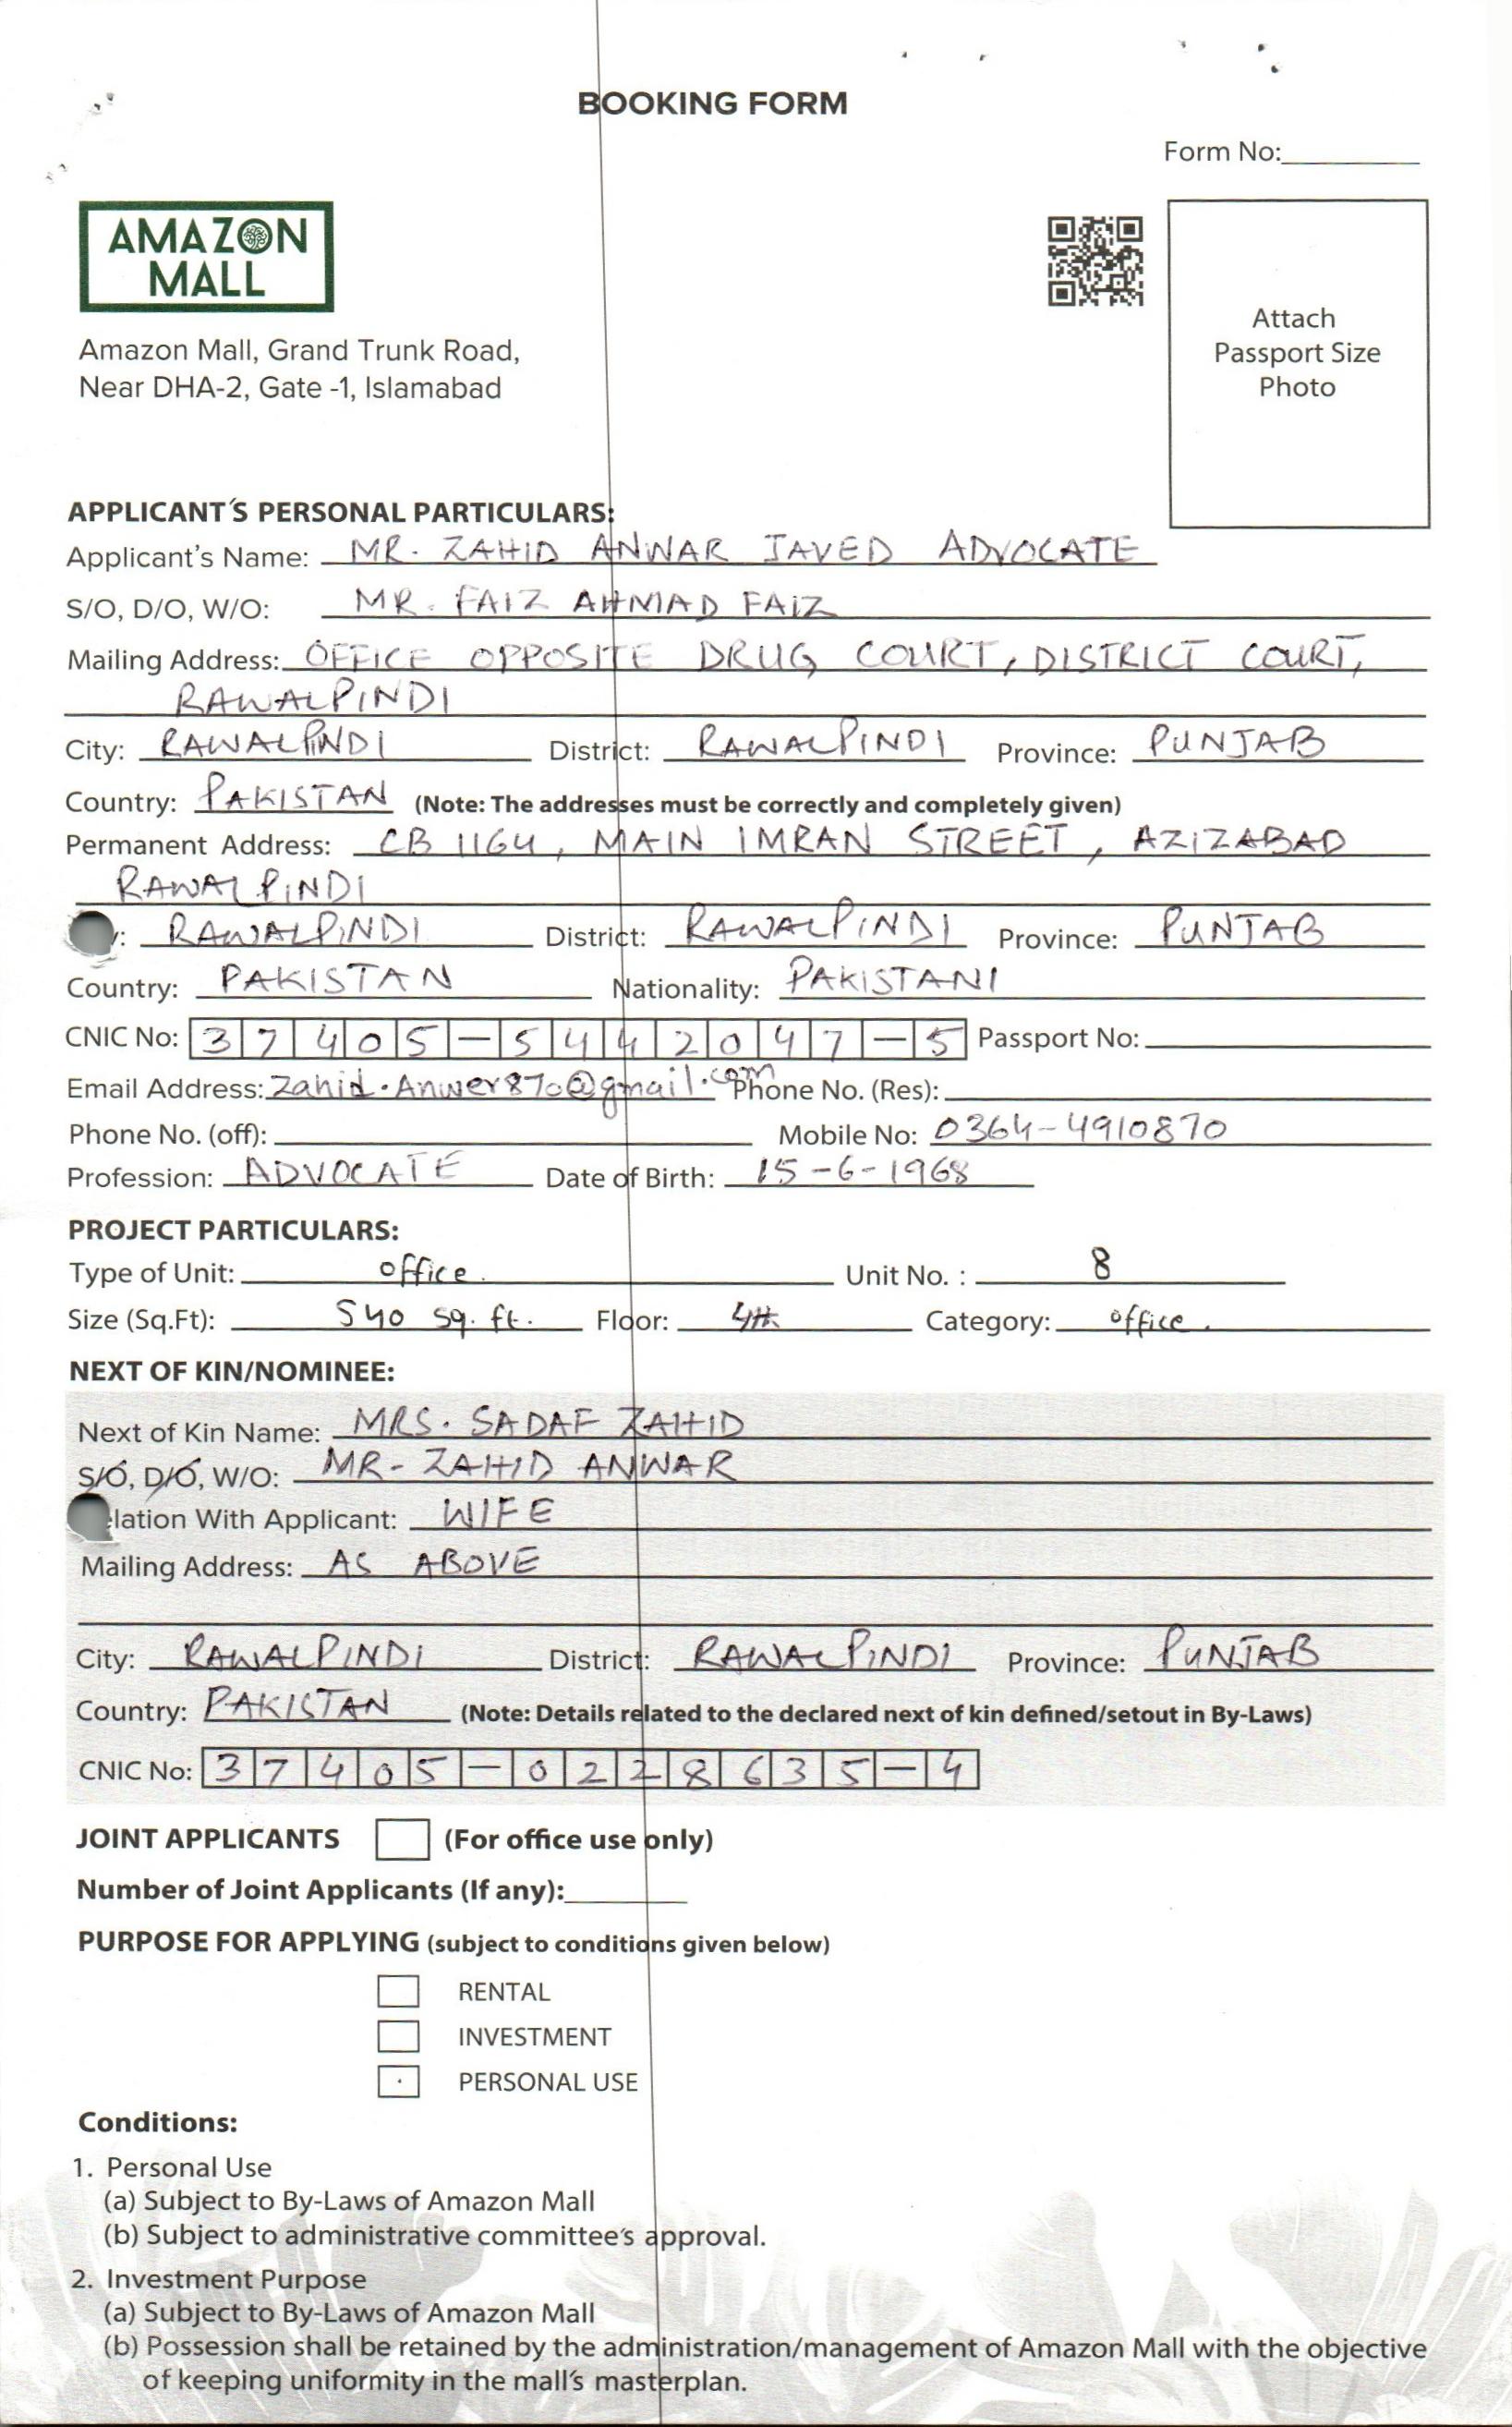 BOOKING FORM
Form No:
AMAZON
MALL
Amazon Mall, Grand Trunk Road,
Near DHA-2, Gate -1, Islamabad
Attach
Passport Size
Photo
APPLICANT'S PERSONAL PARTICULARS:
Applicant's Name: MR. ZAHID ANWAR JAVED ADVOCATE
S/O, D/O, W/O: MR. FAIZ AHMAD FAIZ
Mailing Address: OFFICE OPPOSITE DRUG COURT, DISTRICT COURT,
RAWALPINDI
City: RAWALPINDI District: RAWALPINDI Province: PUNJAB
Country: PAKISTAN (Note: The addresses must be correctly and completely given)
Permanent Address: CB 1164, MAIN IMRAN STREET, AZIZABAD
RAWALPINDI
y: RAWALPINDI District: RAWALPINDI Province: PUNJAB
Country: PAKISTAN Nationality: PAKISTANI
CNIC No: 37405-5442047-5 Passport No:
Email Address: Zahid.Anwer870@gmail.com Phone No. (Res):
Phone No. (off): Mobile No: 0364-4910870
Profession: ADVOCATE Date of Birth: 15-6-1968
PROJECT PARTICULARS:
Type of Unit: office. Unit No. : 8
Size (Sq.Ft): 540 sq. ft. Floor: 4th Category: office.
NEXT OF KIN/NOMINEE:
Next of Kin Name: MRS. SADAF ZAHID
S/O, D/O, W/O: MR- ZAHID ANWAR
elation With Applicant: WIFE
Mailing Address: AS ABOVE
City: RAWALPINDI District: RAWALPINDI Province: PUNJAB
Country: PAKISTAN (Note: Details related to the declared next of kin defined/setout in By-Laws)
CNIC No: 37405-0228635-4
JOINT APPLICANTS (For office use only)
Number of Joint Applicants (If any):
PURPOSE FOR APPLYING (subject to conditions given below)
RENTAL
INVESTMENT
PERSONAL USE
Conditions:
1. Personal Use
(a) Subject to By-Laws of Amazon Mall
(b) Subject to administrative committee's approval.
2. Investment Purpose
(a) Subject to By-Laws of Amazon Mall
(b) Possession shall be retained by the administration/management of Amazon Mall with the objective
of keeping uniformity in the mall's masterplan.